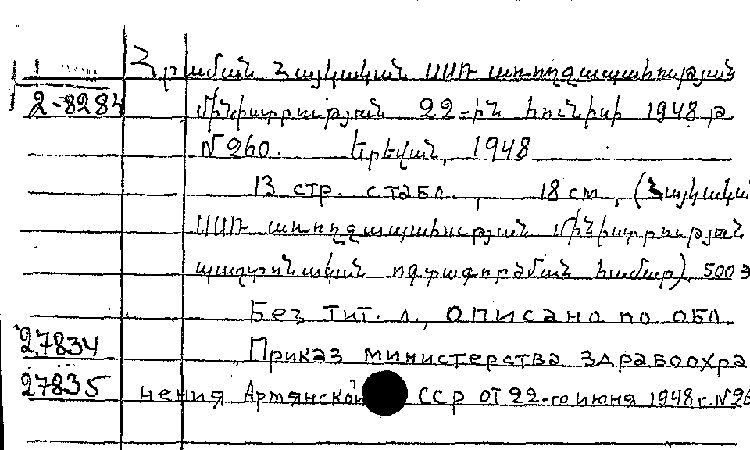 Հրաման Հայկական ՍՍՌ առողջապահության
2-8284 մինիստրության 22-ին հունիսի 1948 թ
N 260. Երեվան, 1948
13 стр. с табл., 18 см, (Հայկական
ՍՍՌ առողջապահության մինիստրության
պաշտոնական օգտագործման համար), 500 э
Без тит. л., описано по обл
27834 Приказ министерства здравоохра
27835 нения Армянской ССР от 22-го июня 1948 г. N 26